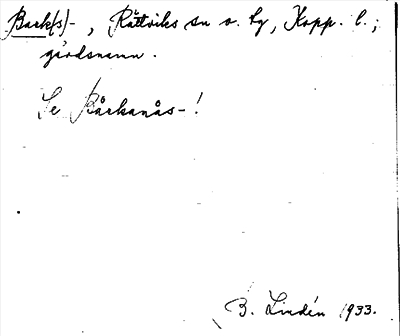 Bark(s)-, Rättviks sn o. by, Kopp. l.;
gårdsnamn.
Se Bårkanås-!
B. Lindén 1933.